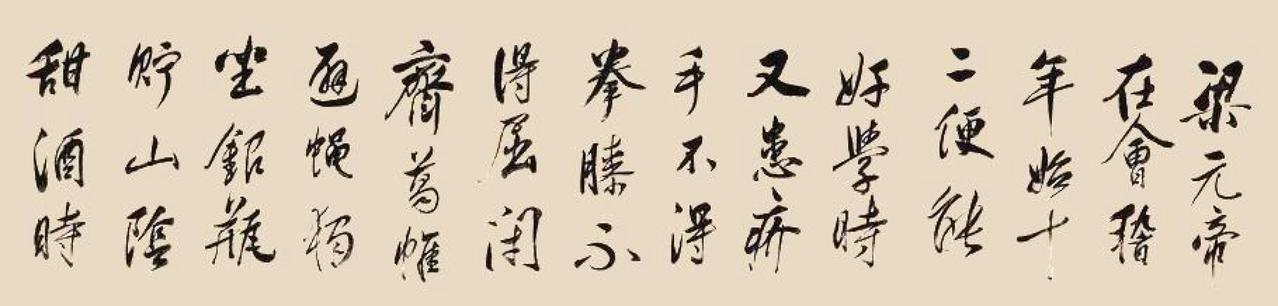 梁元帝
在會稽
年始十
二便能
好學時
又患疥
手不得
拳膝不
得屈閑
齋葛帷
避蠅獨
坐銀甁
貯山陰
甜酒時